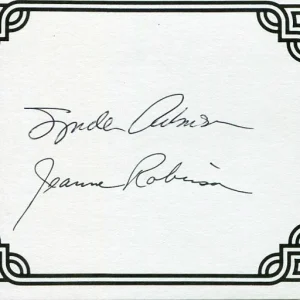 Spider Robinson
Jeanne Robinson